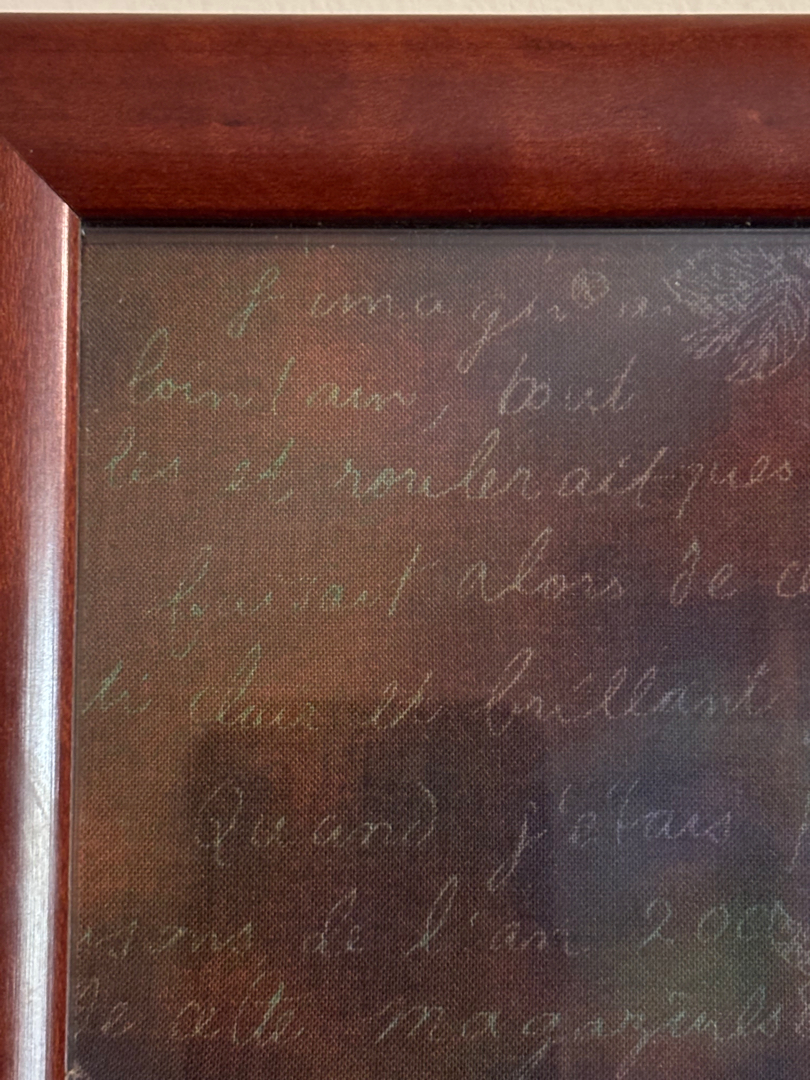 J'imagin ai
lointain, tout
les et roulerait ques
faisait alors de c
ti clair et brillant
Quand j'étais p
isons de l'an 200
de cette magazines